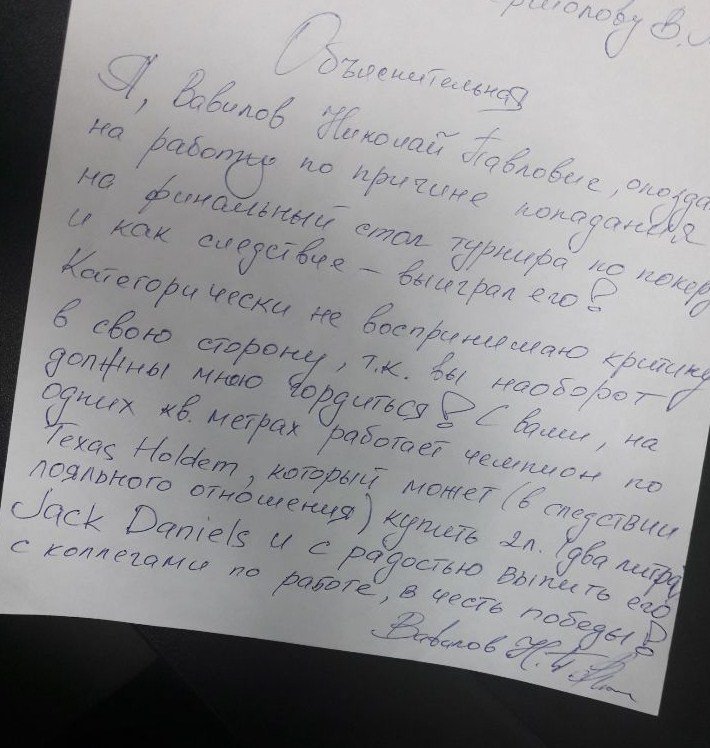 В.
Объяснительная
Я, Вавилов Николай Павлович, опозда
на работу по причине попадания
на финальный стол турнира по покеру
и как следствие – выиграл его!
Категорически не воспринимаю критику
в свою сторону, т.к. вы наоборот
должны мною гордиться! С вами, на
одних кв. метрах работает чемпион по
Texas Holdem, который может (в следствии
лояльного отношения) купить 2л. (два литра)
Jack Daniels и с радостью выпить его
с коллегами по работе, в честь победы!
Вавилов Н.П.